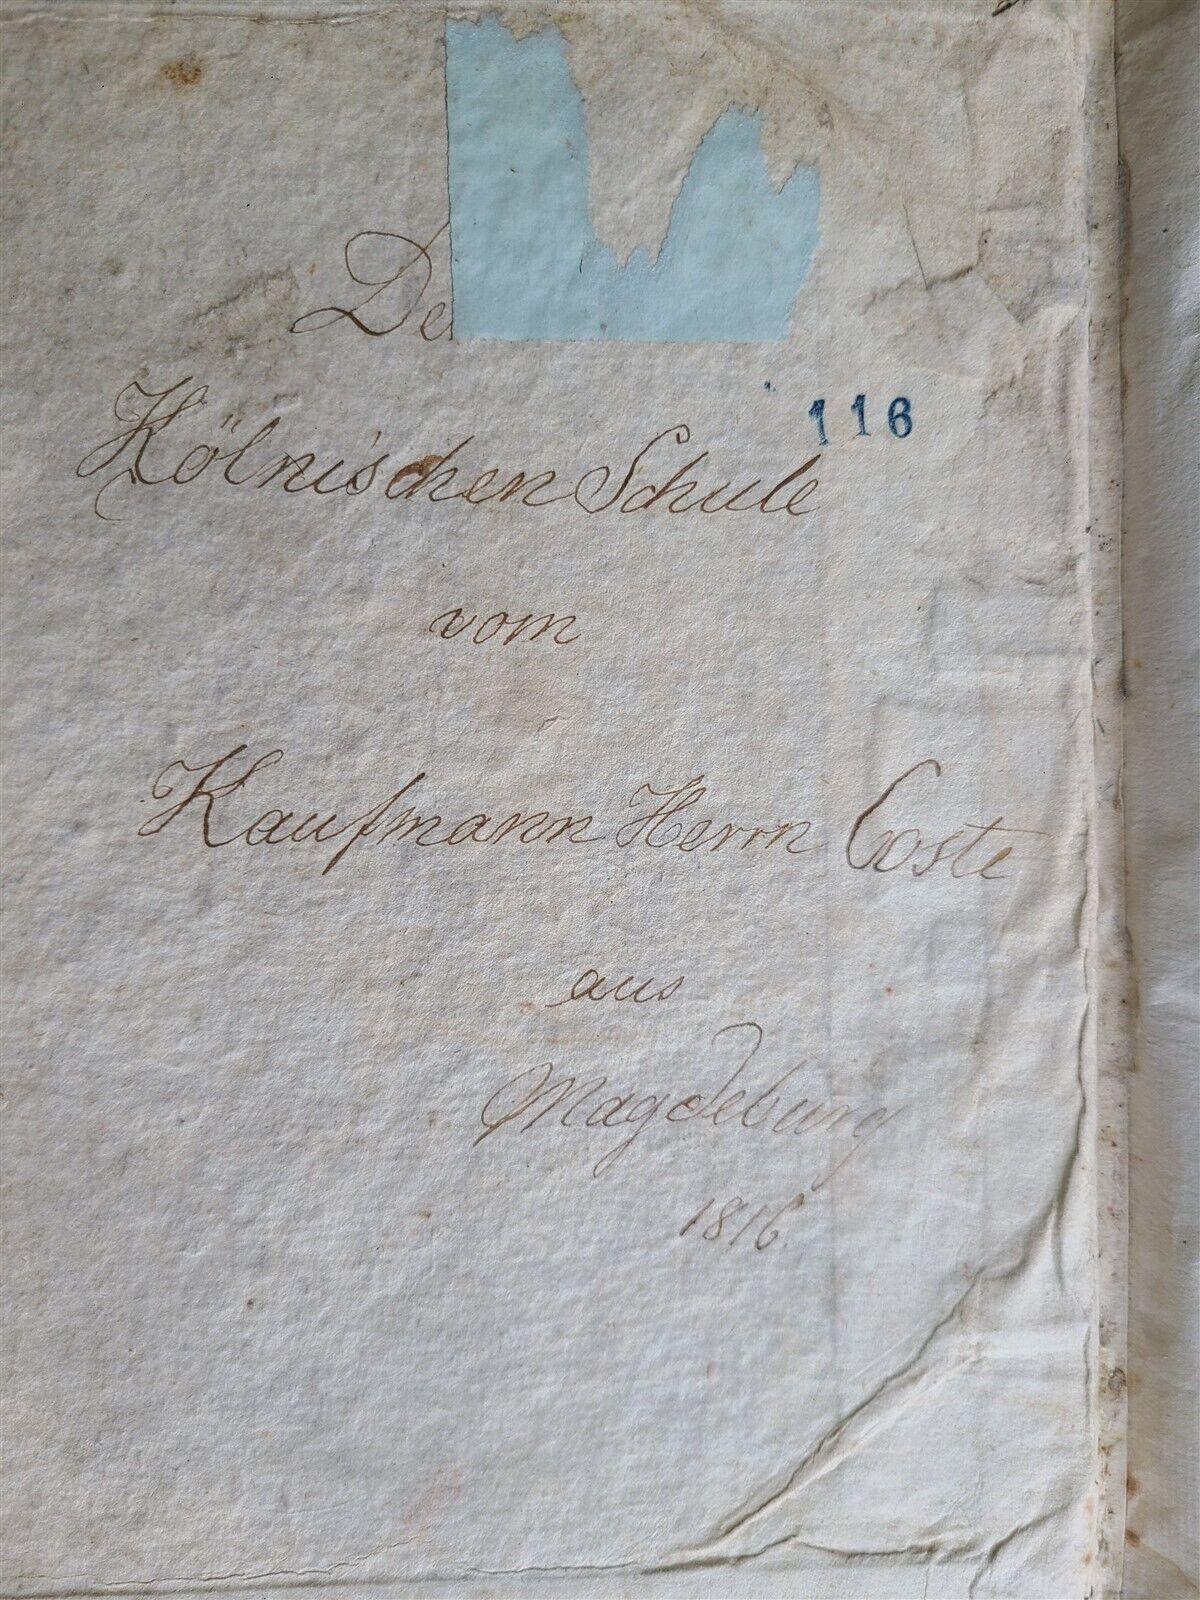 De
116
Kölnischen Schule
vom
Kaufmann Herrn Coste
aus
Magdeburg
1816.